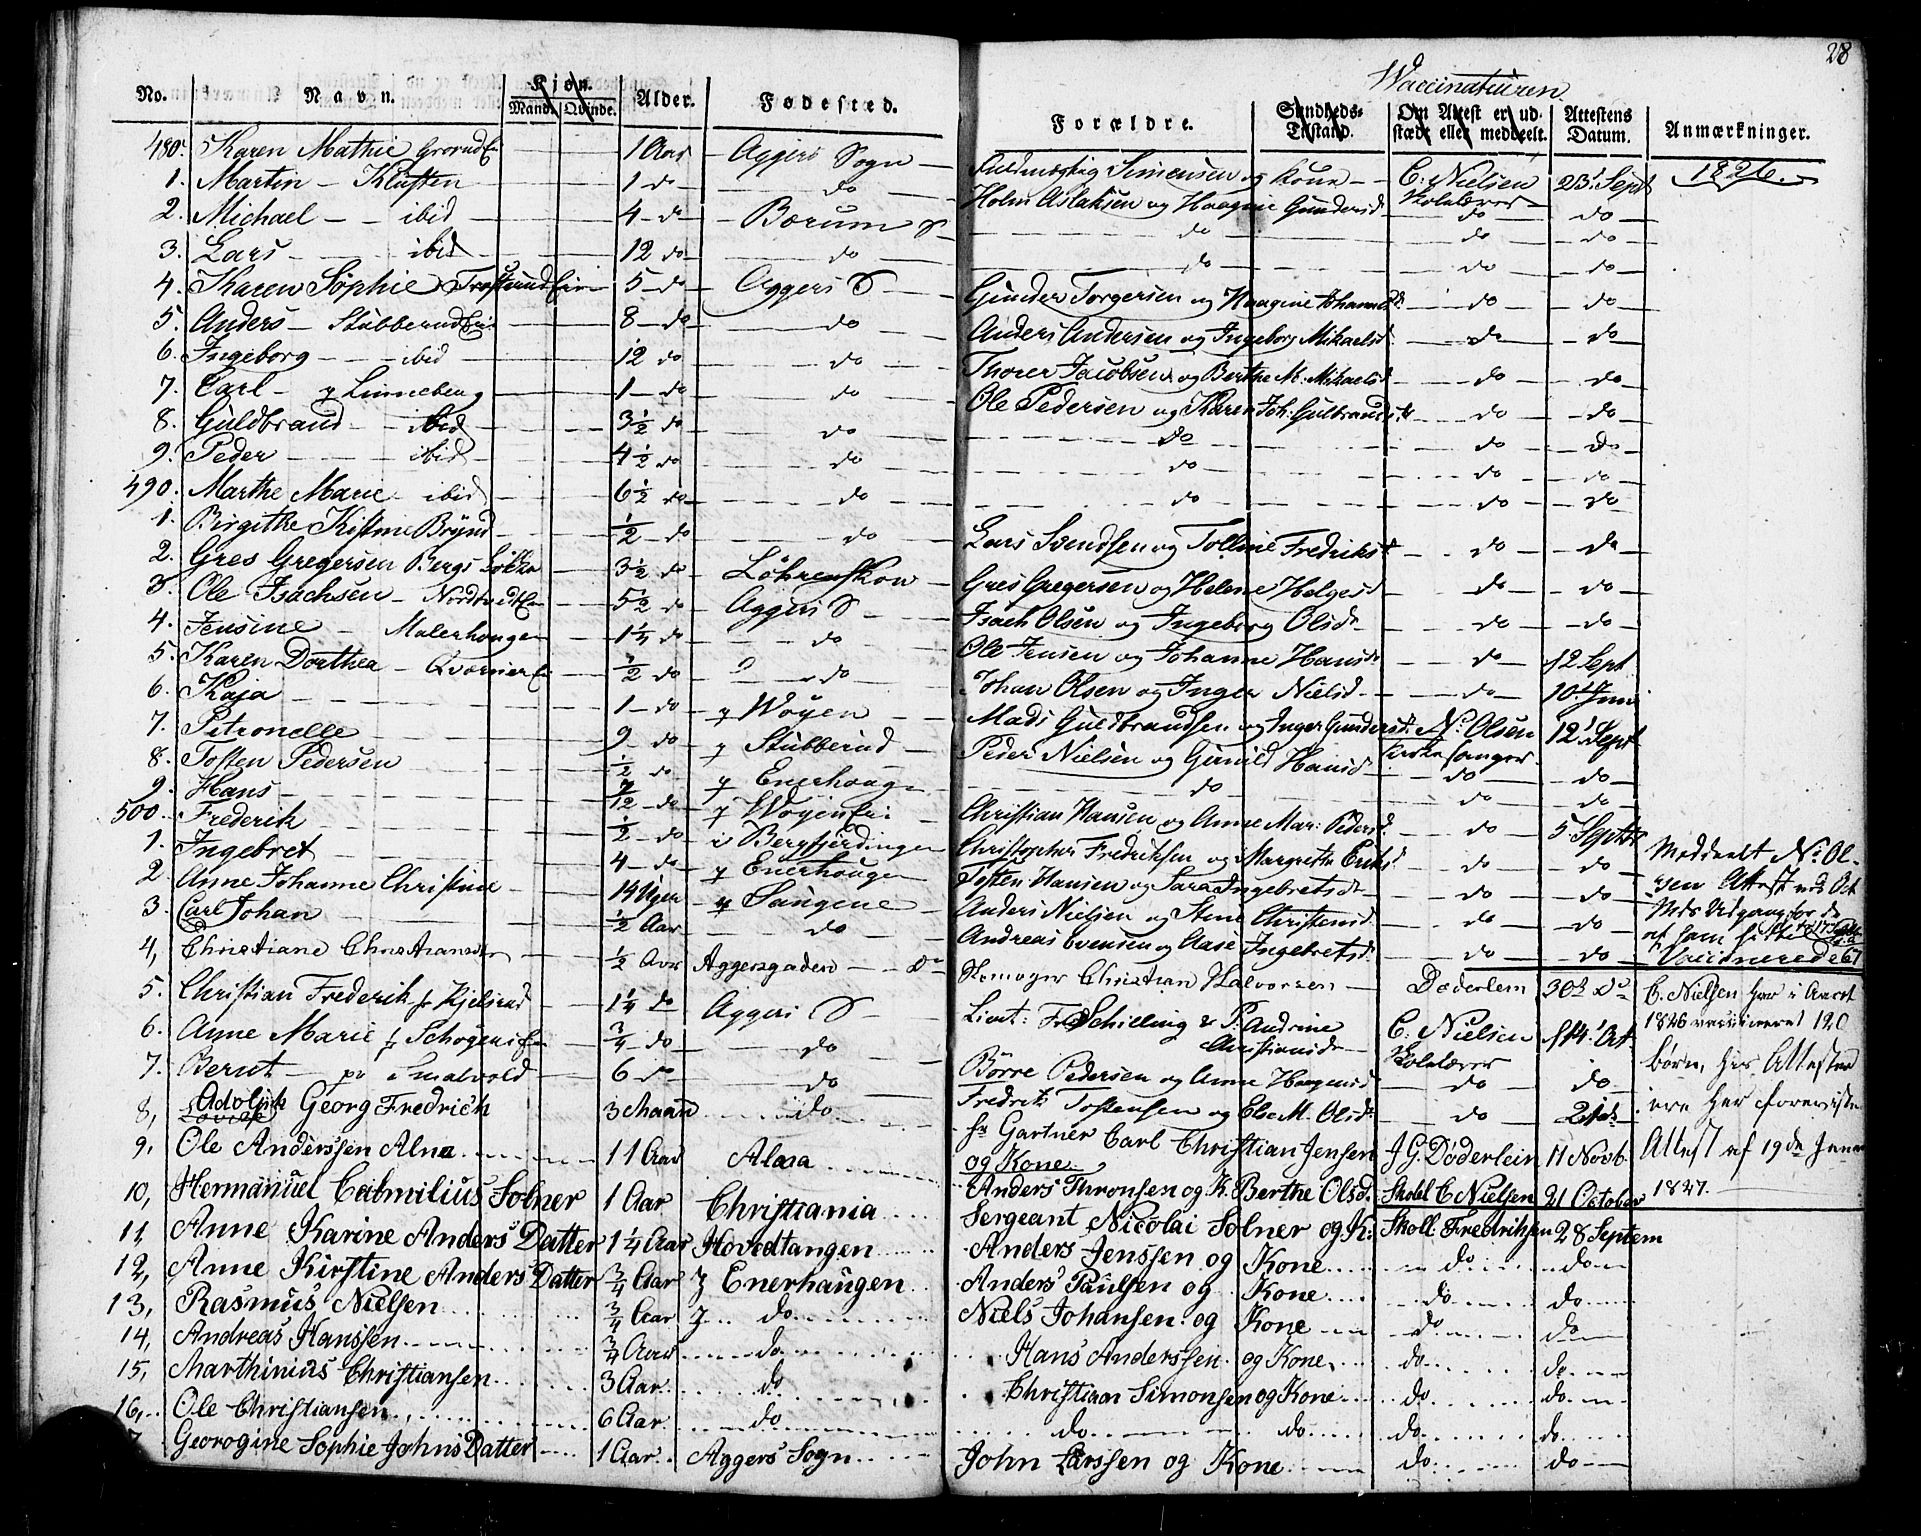 28
Vaccinatuuren
No. Navn. Kiøn. Mandk. Qvinde. Alder. Fødested. Forældre. Sundheds-Tilstand. Om Attest er udstædt eller meddeelt. Attestens Datum. Anmærkninger.
480. Karen Mathie Grorud Ei 1 Aar Aggers Sogn Simensen og Kone C. Nielsen Skolelærer 23 Sept 1826.
1. Martin Klüften 1 do do Holm Aslaksen og Haagine Gundersd do do
2. Michael ibid 4 do Bærum S do do do
3. Lars ibid 12 do do do do do
4. Karen Sophie Trosterud Eie 5 do Aggers S Gunder Torgersen og Haagine Johannesd. do do
5. Anders Stubberud Ei 8 do do Anders Andersen og Ingeborg Mikaelsd. do do
6. Ingeborg ibid 12 do do Thorer Jacobsen og Berthe M. Mikaelsd do do
7. Carl p Linneberg 1 do do Ole Pedersen og Karen Joh. Gulbrandsd do do
8. Guldbrand ibid 3½ do do do do do
9. Peder ibid 4½ do do do do do
490. Marthe Marie ibid 6½ do do do do do
1. Birgithe Kistine Brynd ½ do do Lars Svendsen og Tolline Fredriksd do do
2. Gres Gregersen Bergs Løkke 3½ do Löhrenskou Gres Gregersen og Helene Helgesd do do
3. Ole Isachsen Nordtvedt Ei 5½ do Aggers S Isach Olsen og Ingeborg Olsd do do
4. Jensine Malerhougen 1¼ do do Ole Jensen og Johanne Hansd do 12 Sept
5. Karen Dorthea Qværner Ei ½ do do Johan Olsen og Inger Nielsd do 10 Juni
6. Kaja 1 do p Woyen Mads Guldbrandsen og Inger Gundersd. N. Olsen Kirkesanger 12 Sept
7. Petronelle 9 do p Stubberud Peder Nielsen og Gunild Hansd do do
8. Tosten Pedersen ½ do p Enerhougen do do do
9. Hans 9/12 do p Woyen Ei Christian Hansen og Anne Mar. Pedersd. do 5 Septbr
500. Frederik ½ do i Bergfjerdingen Christopher Fredriksen og Margrethe Eriksd do do
1. Ingebret 4 do p Enerhougen Tosten Hansen og Sara Ingebretsd do do
2 Anne Johanne Christine 14 Uger p Saugene Anders Nielsen og Stine Christensd do do
3. Carl Johan ½ Aar do Andreas Evensen og Aase Ingebretsd. do do
Meddeelt N. Olsen Attest
4, Christiane Christiansdr ½ Aar Aggersgaden do Skomager Christian Halvorsen Döderlein 30 do
5. Christian Frederik p Kjelsrud 1¼ do Aggers S Lieut: Fr Schilling & P. Andrine Christiansd C. Nielsen Skolelærer 14 Oct.
6. Anne Marie p Schøyens Ei ¾ do do Börre Pedersen og Anne Haagensd do do
7. Bernt pa Smalvold 6 do do Fredrik Tostensen og Else M. Olsd do 21
8, Adolph Georg Fredrich 3 Maan do hr Gartner Carl Christian Jensen og Kone. J G. Döderlein 11 Novb.
C. Nielsen har i Aaret 1826 vaccineret 120 börn, hvis Attester ere her foreviste Attest af 19de Januar 1827.
9, Ole Anderssen Alna 11 Aar Alna Anders Thronsen og K. Berthe Olsd. Skoll C Nielsen 21 October
10, Hermanuel Catmilius Solner 1 Aar Christiania Sergeant Nicolai Solner og K: Skoll. Fredriksen 28 Septem
11, Anne Karine Anders Datter 1¼ Aar Hovedtangen Anders Jenssen og Kone do do
12, Anne Kirstine Anders Datter ¾ Aar Enerhaugen Anders Paulsen og Kone do do
13, Rasmus Nielsen ¾ Aar do Niels Johansen og Kone do do
14, Andreas Hanssen ¾ Aar do Hans Anderssen og Kone do do
15, Marthinius Christiansen 3 Aar do Christian Simonsen og Kone do do
16, Ole Christiansen 6 Aar do do do do do
Georogine Sophie Johns Datter 1 Aar Aggers Sogn John Larssen og Kone do do